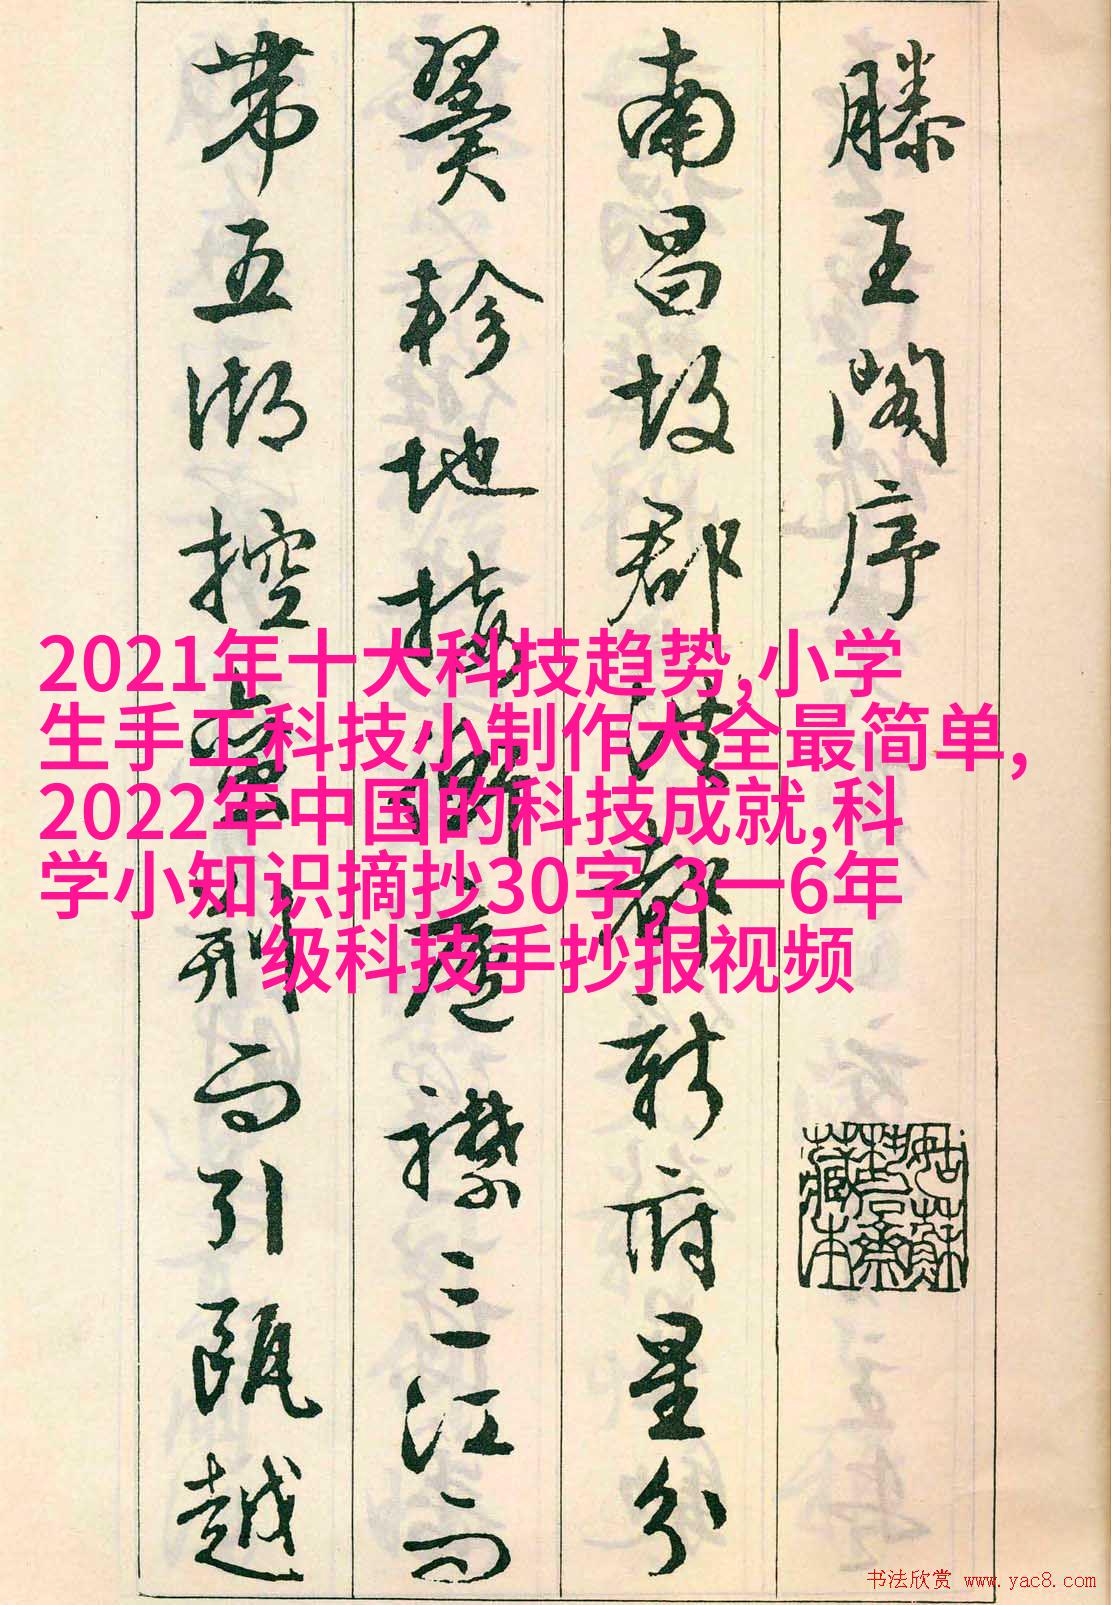 滕王阁序
南昌故郡洪都新府星分
翼轸地接衡庐襟三江而
带五湖控蛮荆而引瓯越
2021年十大科技趋势,小学
生手工科技小制作大全最简单,
2022年中国的科技成就,科
学小知识摘抄30字,3一6年
级科技手抄报视频
书法欣赏 www.yac8.com